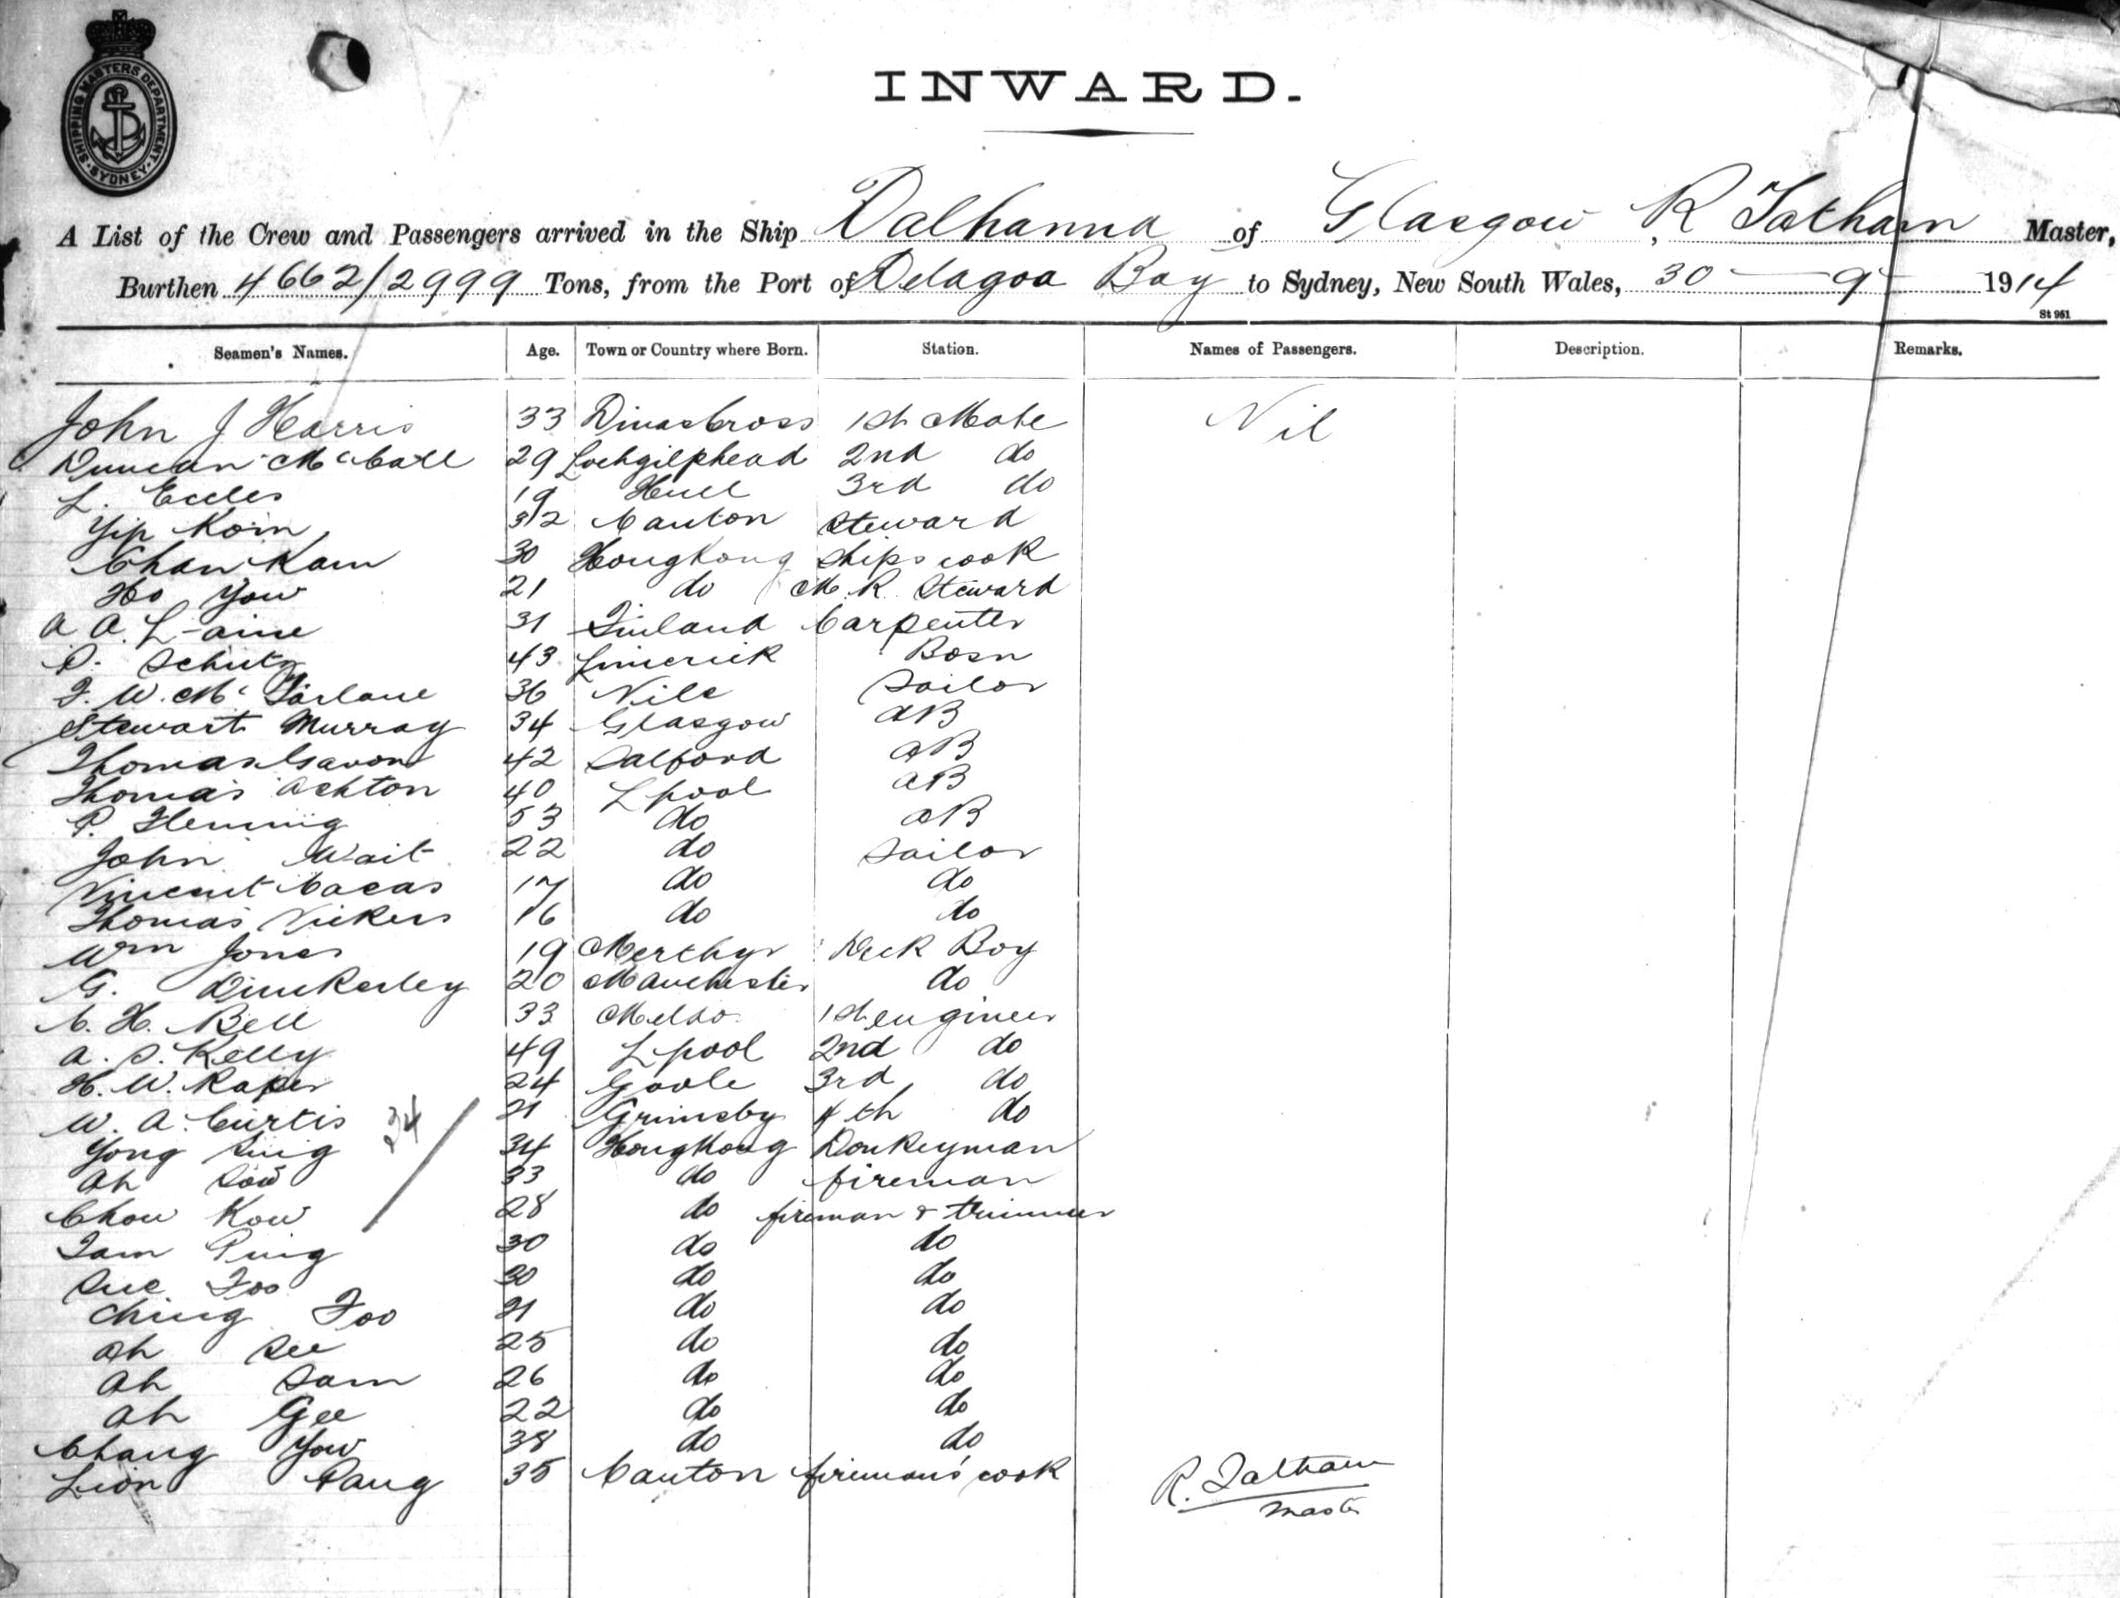 SHIPPING MASTERS DEPARTMENT. SYDNEY
INWARD.
A List of the Crew and Passengers arrived in the Ship Dalhanna of Glasgow, R Tatham Master,
Burthen 4662/2999 Tons, from the Port of Delagoa Bay to Sydney, New South Wales, 30 - 9 - 1914
St 951
Seamen's Names. Age. Town or Country where Born. Station. Names of Passengers. Description. Remarks.
John J Harris 33 Dinas Cross 1st Mate Nil
Duncan McCall 29 Lochgilphead 2nd do
L. Eccles 19 Hull 3rd do
Yip Koin 32 Canton Steward
Chan Kam 30 Hongkong Ships cook
Ho You 21 do M. R. Steward
A A. Laine 31 Finland Carpenter
P. Schutz 43 Limerick Bosn
F. W. Mc Farlane 36 Sailor
Stewart Murray 34 Glasgow AB
Thomas 42 Salford AB
Thomas Ashton 40 Lpool AB
P. Fleming 53 do AB
John Wait 22 do Sailor
Vincent 17 do do
Thomas Vickers 16 do do
Wm Jones 19 Merthyr Deck Boy
G. Dunkerley 20 Manchester do
C. H. Bell 33 1st engineer
A. S. Kelly 49 Lpool 2nd do
H. W. Raper 24 Goole 3rd do
W. A. Curtis 21 Grimsby 4th do
234
Yong Sing 34 Hongkong Donkeyman
Ah Sow 33 do fireman
Chou Kow 28 do fireman & trimmer
Tam Ping 30 do do
Sue Foo 30 do do
Ching Foo 21 do do
Ah See 25 do do
Ah Sam 26 do do
Ah Gee 22 do do
Chang You 38 do do
Lion Pang 35 Canton fireman's cook
R. Tatham
Master